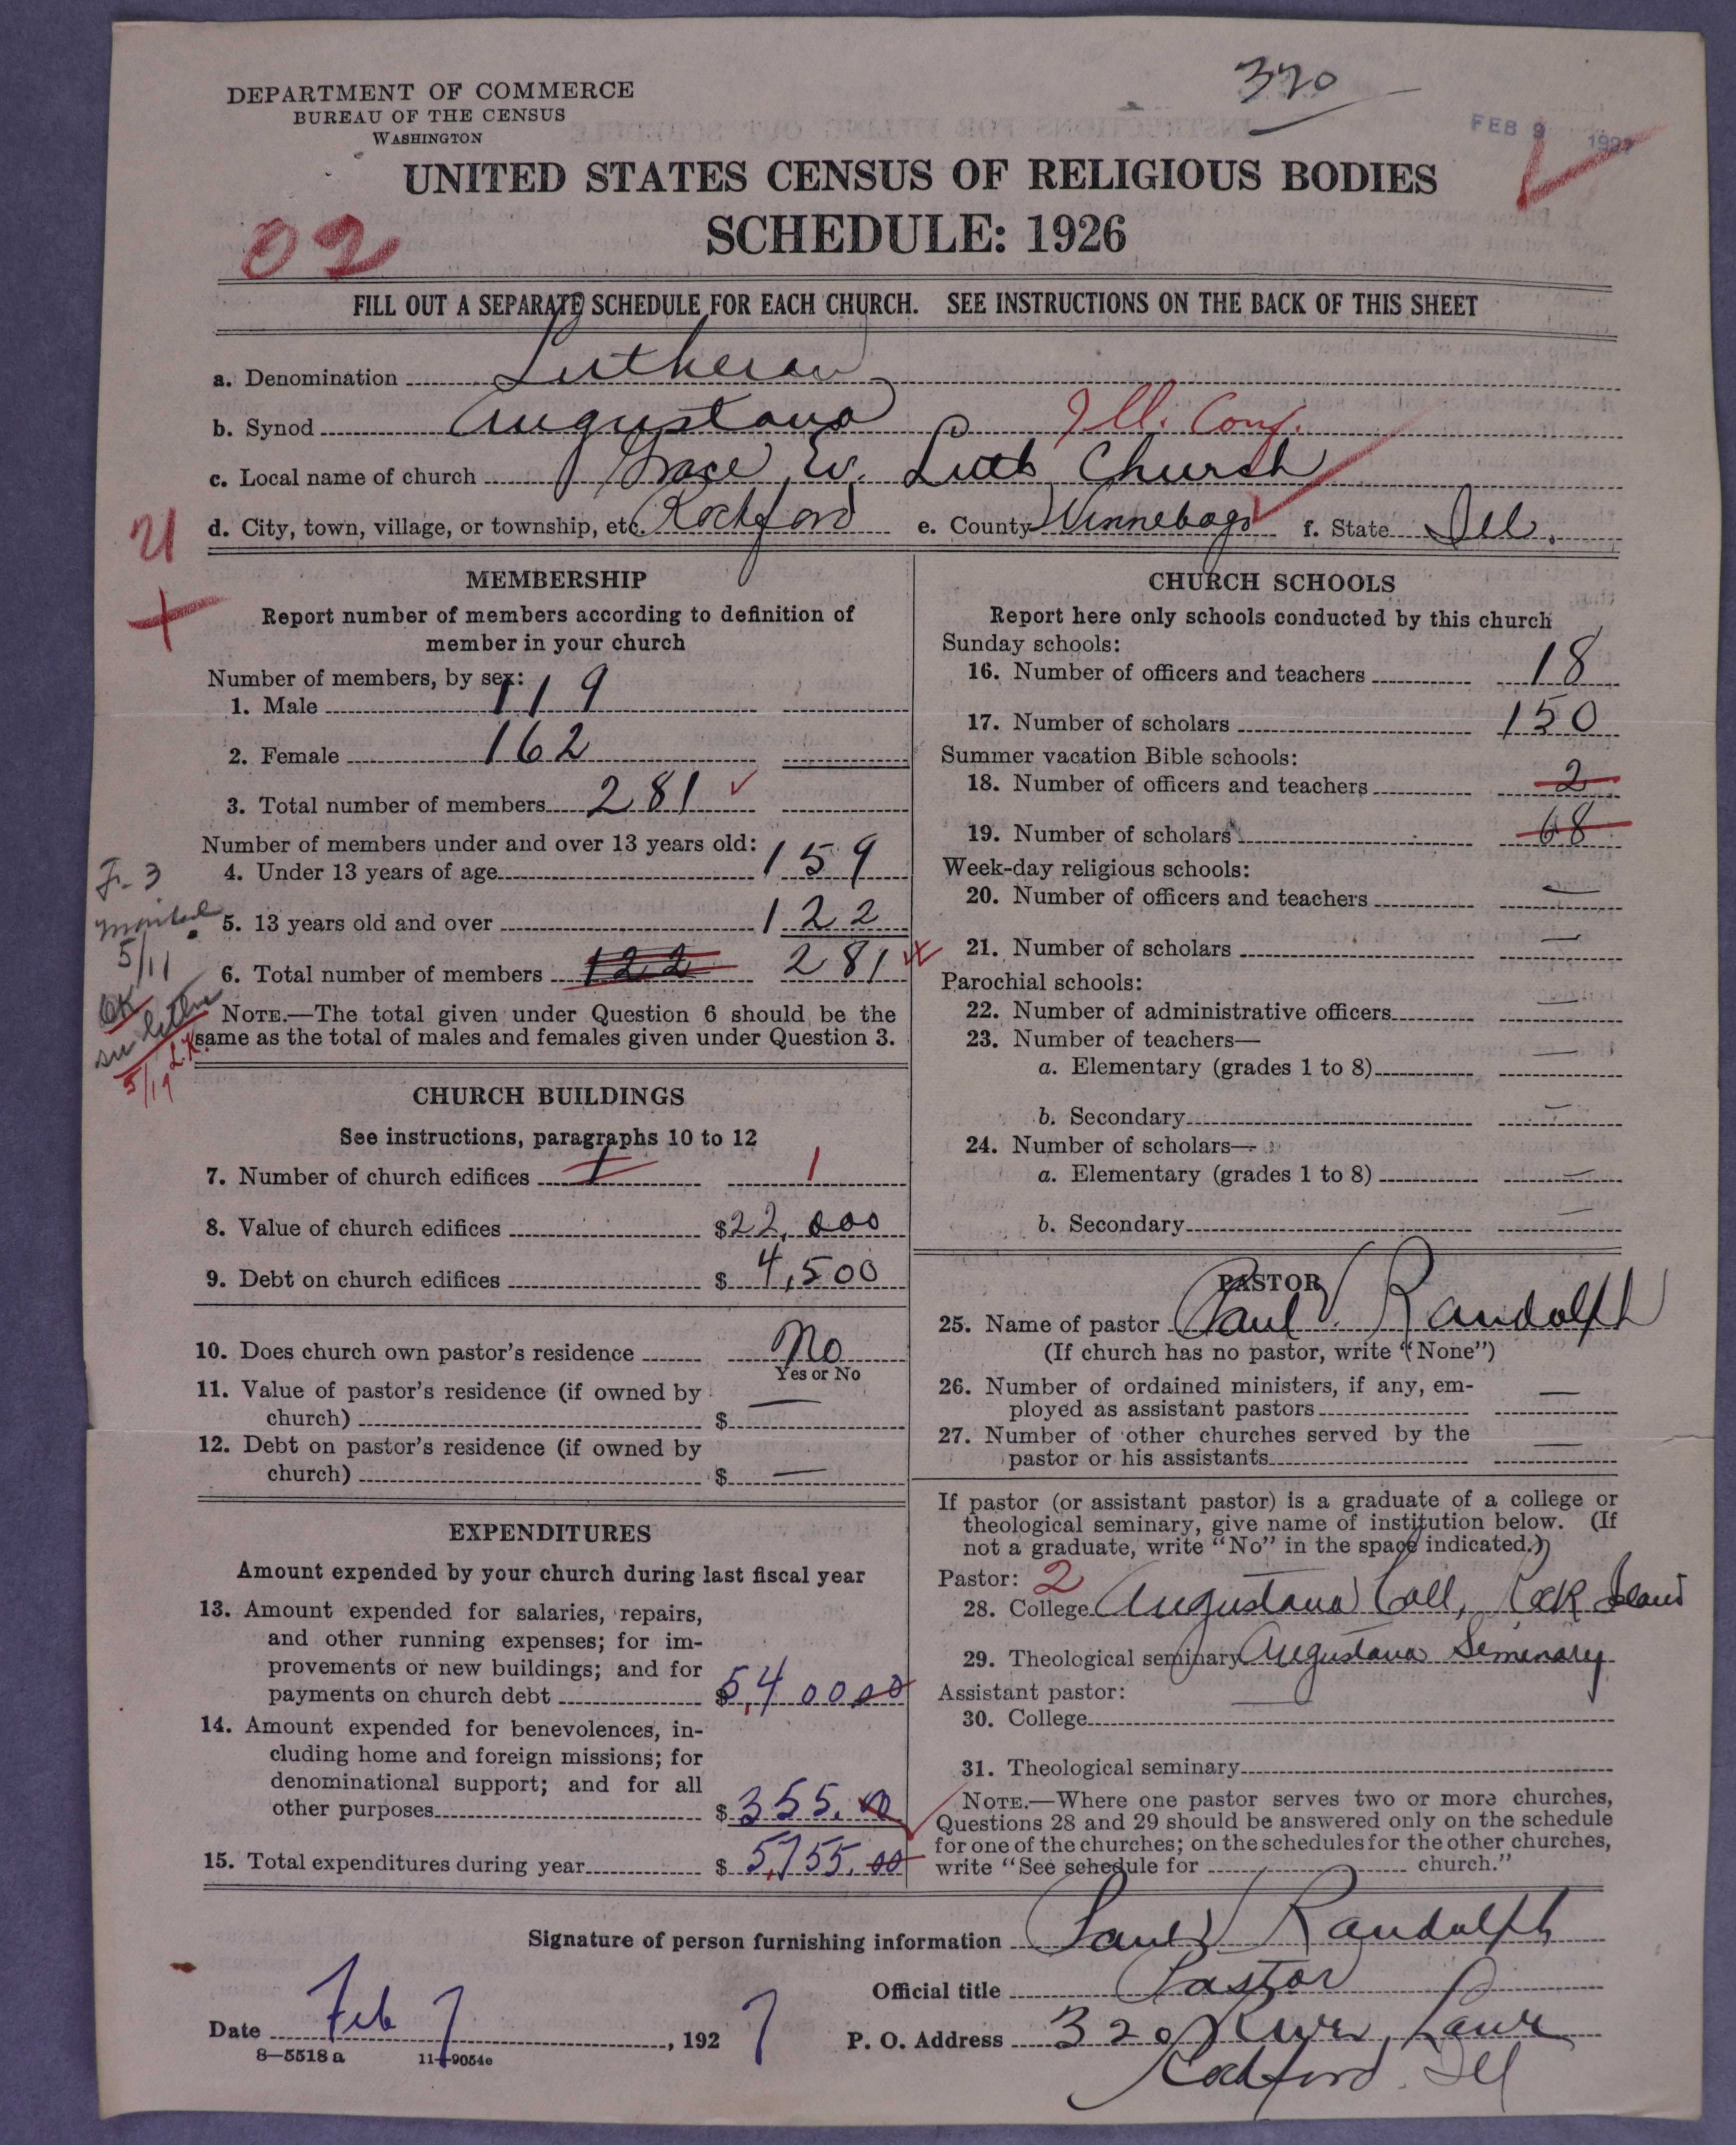 DEPARTMENT OF COMMERCE
BUREAU OF THE CENSUS
WASHINGTON
320
FEB 9 1927
UNITED STATES CENSUS OF RELIGIOUS BODIES
SCHEDULE: 1926
02
FILL OUT A SEPARATE SCHEDULE FOR EACH CHURCH. SEE INSTRUCTIONS ON THE BACK OF THIS SHEET
a. Denomination Lutheran
b. Synod Augustana Ill. Conf.
c. Local name of church Grace Ev. Luth Church
d. City, town, village, or township, etc. Rockford e. County Winnebago f. State Ill.
MEMBERSHIP
Report number of members according to definition of
member in your church
Number of members, by sex:
1. Male 119
2. Female 162
3. Total number of members 281
Number of members under and over 13 years old:
4. Under 13 years of age 159
5. 13 years old and over 122
6. Total number of members 122 281
5/11
OK
5/19
NOTE.—The total given under Question 6 should be the
same as the total of males and females given under Question 3.
CHURCH BUILDINGS
See instructions, paragraphs 10 to 12
7. Number of church edifices 1 1
8. Value of church edifices $22,000
9. Debt on church edifices $4,500
10. Does church own pastor's residence No
Yes or No
11. Value of pastor's residence (if owned by
church) $ —
12. Debt on pastor's residence (if owned by
church) $ —
EXPENDITURES
Amount expended by your church during last fiscal year
13. Amount expended for salaries, repairs,
and other running expenses; for im-
provements or new buildings; and for
payments on church debt $5,40000
14. Amount expended for benevolences, in-
cluding home and foreign missions; for
denominational support; and for all
other purposes $355.00
15. Total expenditures during year $5,755.00
CHURCH SCHOOLS
Report here only schools conducted by this church
Sunday schools:
16. Number of officers and teachers 18
17. Number of scholars 150
Summer vacation Bible schools:
18. Number of officers and teachers 2
19. Number of scholars 68
Week-day religious schools:
20. Number of officers and teachers —
21. Number of scholars —
Parochial schools:
22. Number of administrative officers —
23. Number of teachers—
a. Elementary (grades 1 to 8) —
b. Secondary —
24. Number of scholars—
a. Elementary (grades 1 to 8) —
b. Secondary —
PASTOR
25. Name of pastor Paul V. Randolph
(If church has no pastor, write "None")
26. Number of ordained ministers, if any, em-
ployed as assistant pastors —
27. Number of other churches served by the
pastor or his assistants —
If pastor (or assistant pastor) is a graduate of a college or
theological seminary, give name of institution below. (If
not a graduate, write "No" in the space indicated.)
Pastor: 2
28. College Augustana Coll, Rock Island
29. Theological seminary Augustana Seminary
Assistant pastor: —
30. College
31. Theological seminary
NOTE.—Where one pastor serves two or more churches,
Questions 28 and 29 should be answered only on the schedule
for one of the churches; on the schedules for the other churches,
write "See schedule for church."
Signature of person furnishing information Paul V Randolph
Official title Pastor
Date Feb 7, 1927 P. O. Address 320 River Lane
Rockford. Ill
8—5518 a 11—9054c